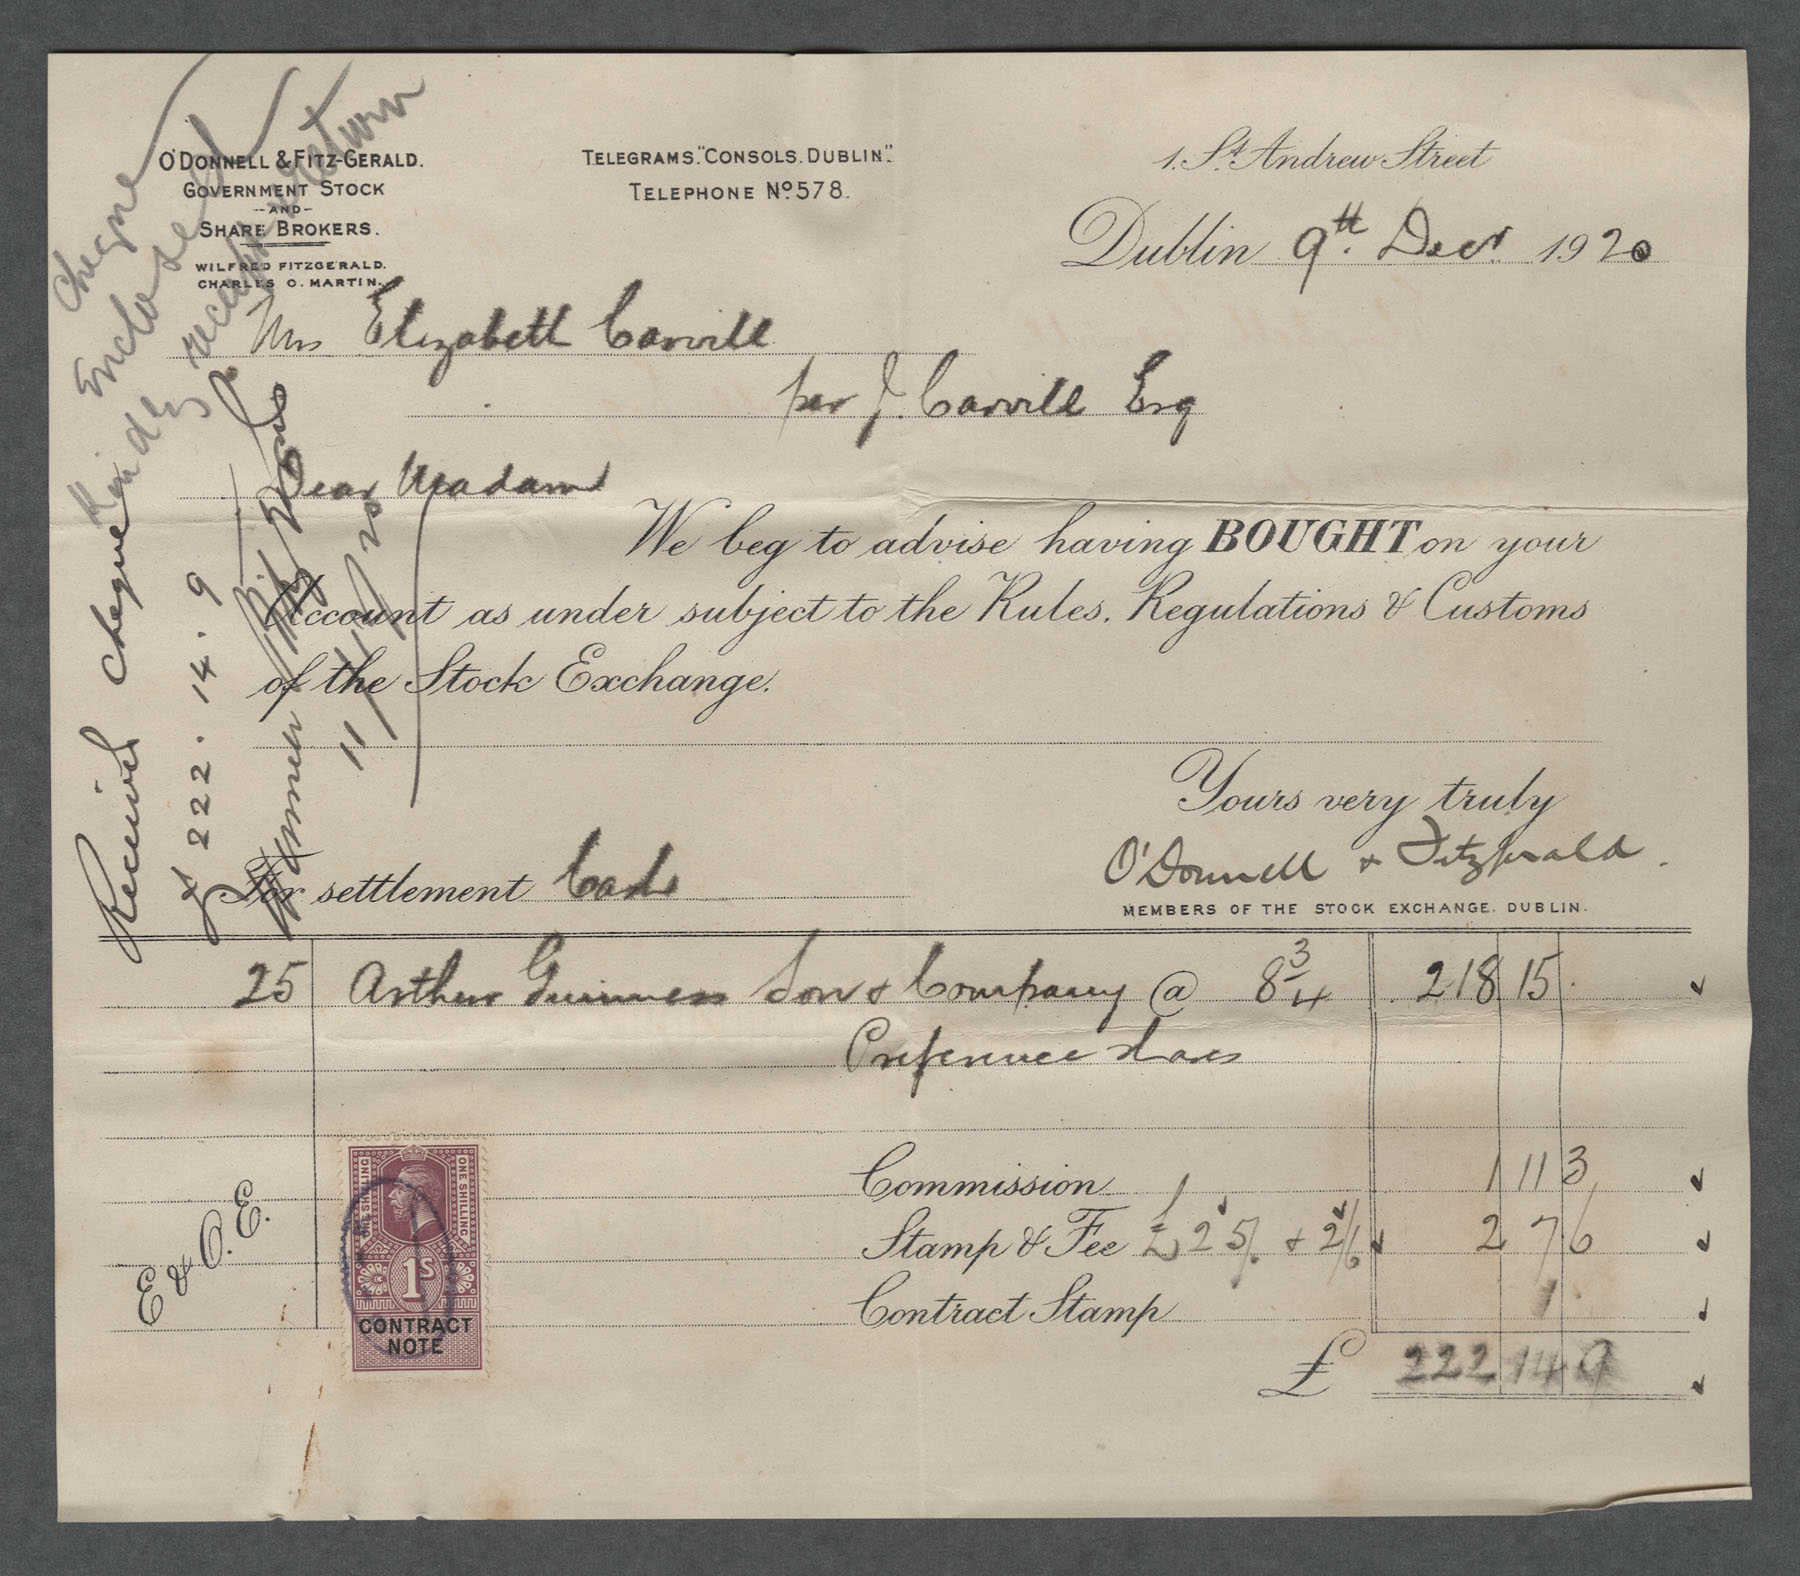 O'DONNELL & FITZ-GERALD.
GOVERNMENT STOCK
-AND-
SHARE BROKERS.
WILFRED FITZGERALD.
CHARLES O. MARTIN.
TELEGRAMS. "CONSOLS. DUBLIN".
TELEPHONE No. 578.
1. St. Andrew Street
Dublin 9th. Decr 1920
Cheque
Enclosed
Kindly receipt & return
Mrs Elizabeth Carvill
per J. Carvill Esq
Dear Madam
We beg to advise having BOUGHT on your
Account as under subject to the Rules, Regulations & Customs
of the Stock Exchange.
Yours very truly
O'Donnell & Fitzgerald.
MEMBERS OF THE STOCK EXCHANGE. DUBLIN.
For settlement Cash
Received cheque
£222.14.9
11/12/20
25 Arthur Guinness Son & Company @ 8 3/4 218 15
Preference shares
Commission 1 11 3
Stamp & Fee £2 5/. & 2/6 2 7 6
Contract Stamp 1
£ 222 14 9
E & O.E.
ONE SHILLING
ONE SHILLING
1S
CONTRACT
NOTE